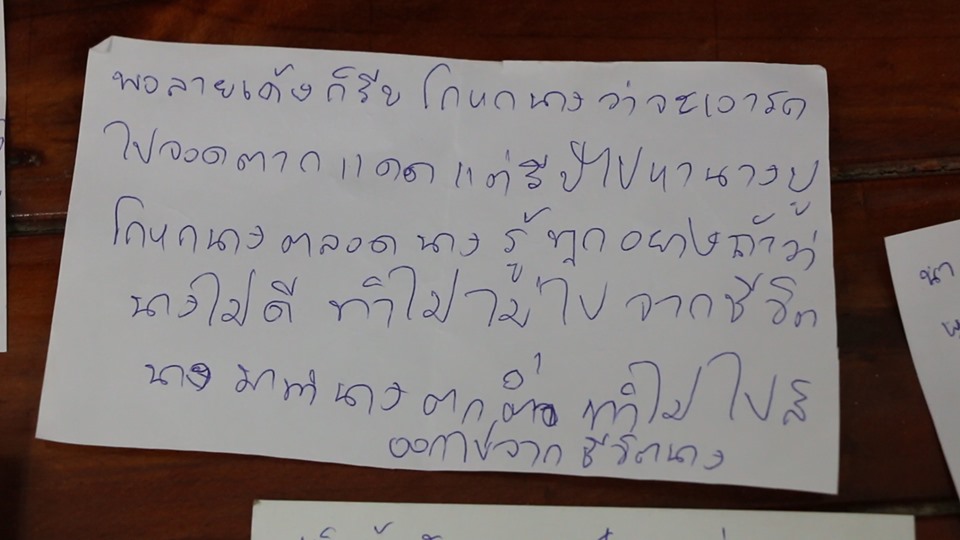 พอลายเค้งก็รีบ โกหกนางว่าจะเอารถ
ไปจอดตากแดด แต่รีปไปหานางปู
โกหกนางตลอดนางรู้ทุกอย่างถ้าว่า
นางไม่ดี ทำไมไม่ไปจากชีวิต
นาง มาทำนางตกต่ำ ทำไม ไปสิ
ออกไปจากชีวิตนาง